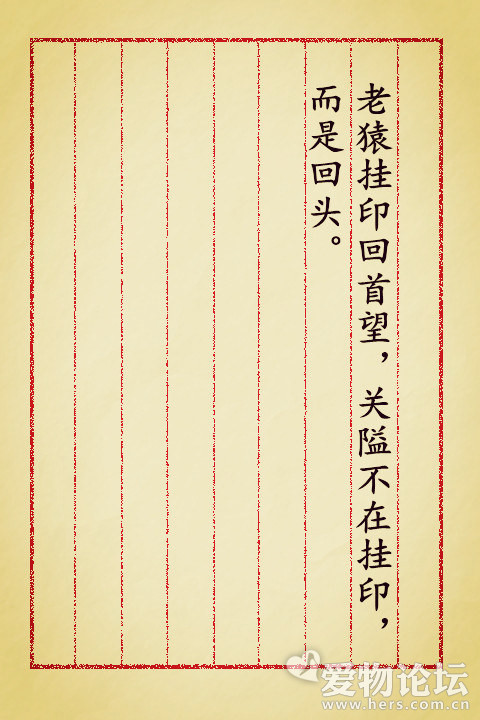 老猿挂印回首望，关隘不在挂印，
而是回头。
爱物论坛
www.hers.com.cn